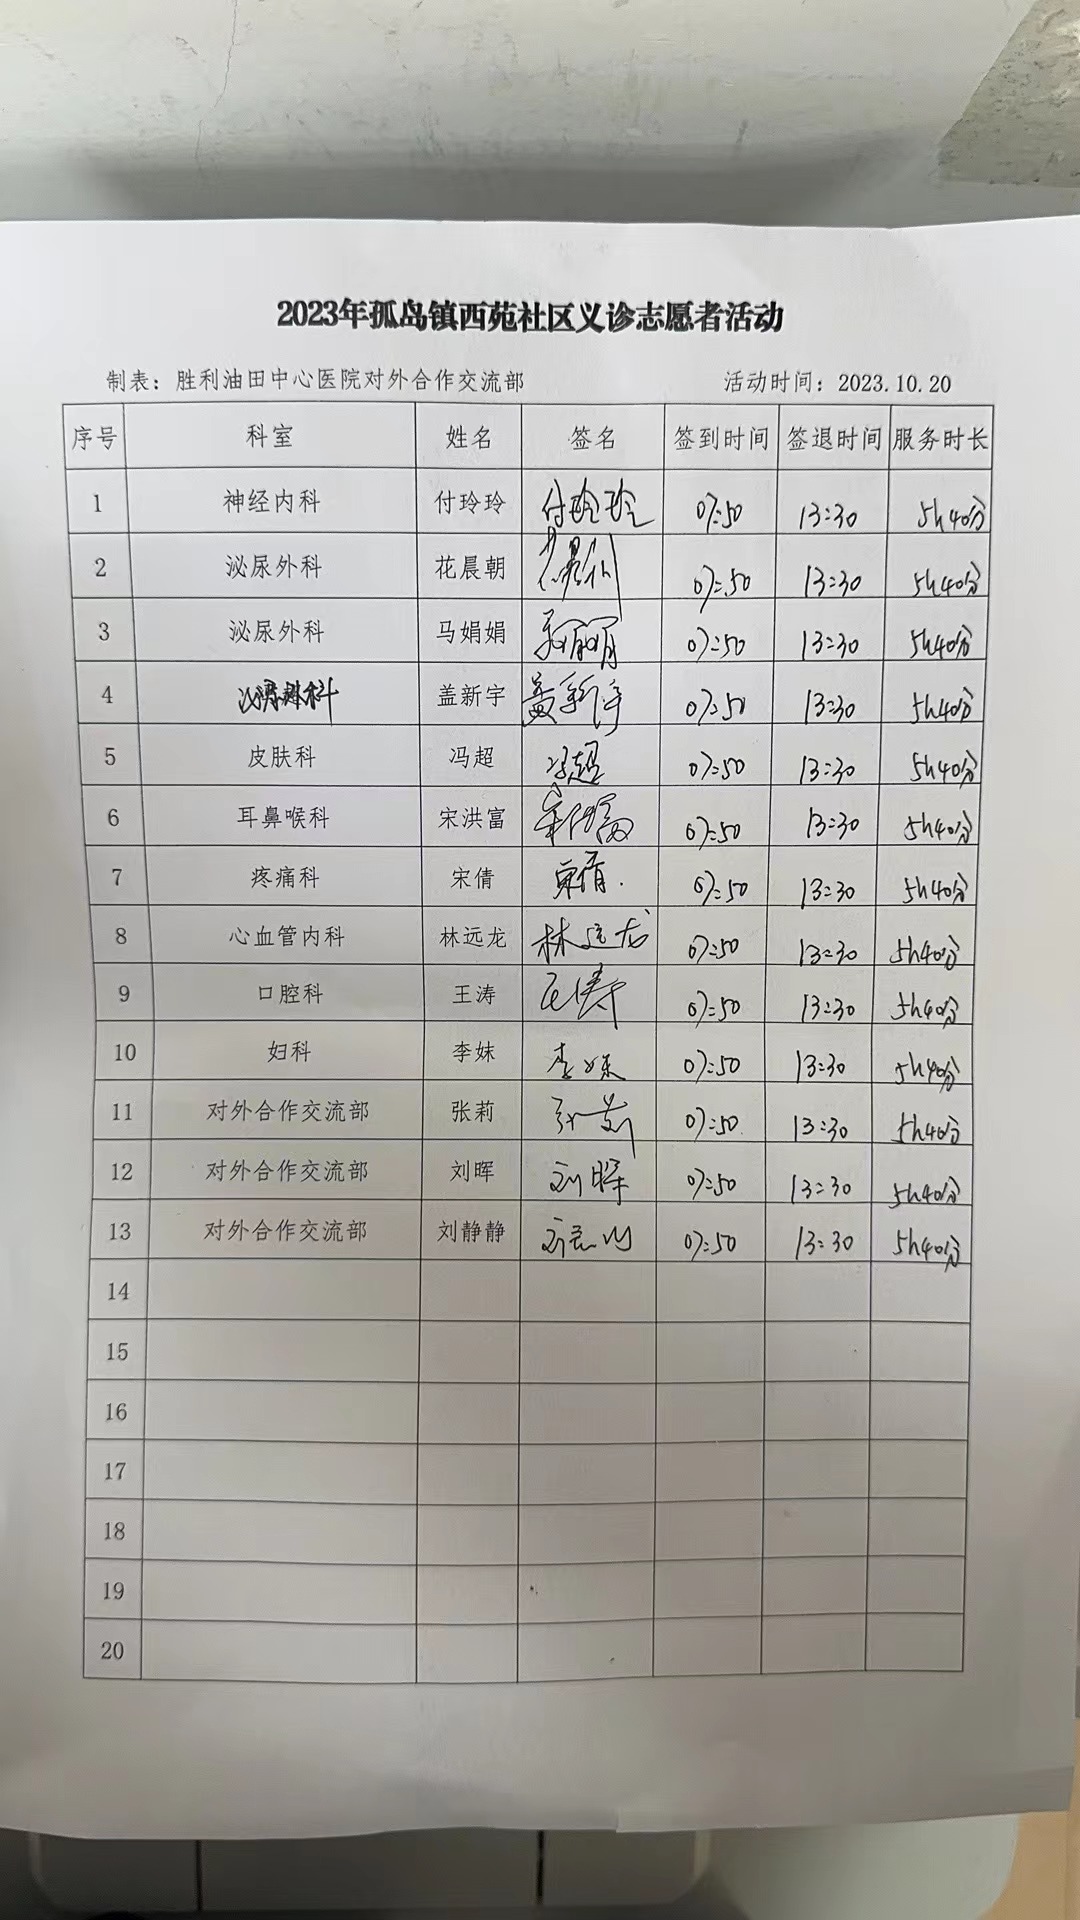 2023年孤岛镇西苑社区义诊志愿者活动
制表：胜利油田中心医院对外合作交流部 活动时间：2023.10.20
序号 科室 姓名 签名 签到时间 签退时间 服务时长
1 神经内科 付玲玲 付玲玲 07:50 13:30 5h40分
2 泌尿外科 花晨朝 07:50 13:30 5h40分
3 泌尿外科 马娟娟 马娟娟 07:50 13:30 5h40分
4 科 盖新宇 盖新宇 07:50 13:30 5h40分
5 皮肤科 冯超 冯超 07:50 13:30 5h40分
6 耳鼻喉科 宋洪富 宋洪富 07:50 13:30 5h40分
7 疼痛科 宋倩 宋倩 07:50 13:30 5h40分
8 心血管内科 林远龙 林远龙 07:50 13:30 5h40分
9 口腔科 王涛 王涛 07:50 13:30 5h40分
10 妇科 李妹 李妹 07:50 13:30 5h40分
11 对外合作交流部 张莉 张莉 07:50 13:30 5h40分
12 对外合作交流部 刘晖 刘晖 07:50 13:30 5h40分
13 对外合作交流部 刘静静 07:50 13:30 5h40分
14
15
16
17
18
19
20